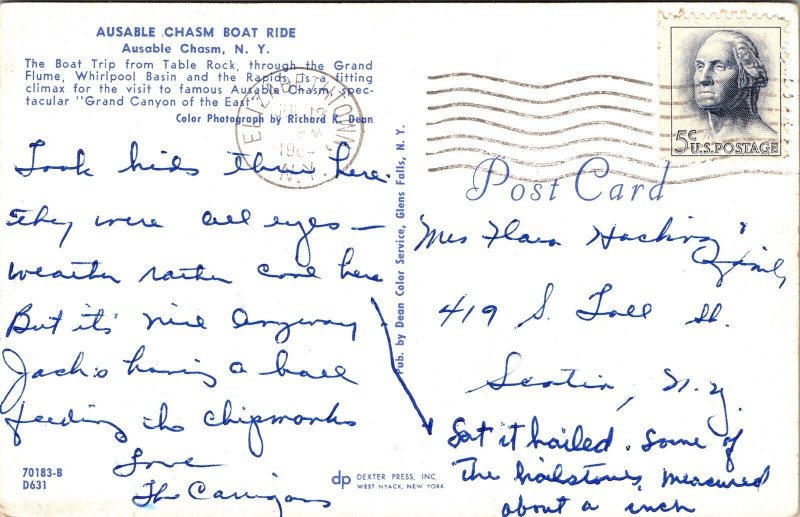 AUSABLE CHASM BOAT RIDE
Ausable Chasm, N. Y.
The Boat Trip from Table Rock, through the Grand
Flume, Whirlpool Basin and the Rapids, is a fitting
climax for the visit to famous Ausable Chasm, spec-
tacular "Grand Canyon of the East".
Color Photograph by Richard K. Dean
Look kids thru here.
They were all eyes —
weather rather cool here
But it's nice anyway.
Jack's having a ball
feeding the chipmonks
Love
The Carrigans
70183-B
D631
Pub. by Dean Color Service, Glens Falls, N. Y.
dp DEXTER PRESS, INC.
WEST NYACK, NEW YORK
ELIZABETHTOWN
N.Y.
5c U.S. POSTAGE
Post Card
Mrs Flora &
Family
419 S. Toll St.
Scotia, N.Y.
Sat it hailed. Some of
the hailstones measured
about a inch